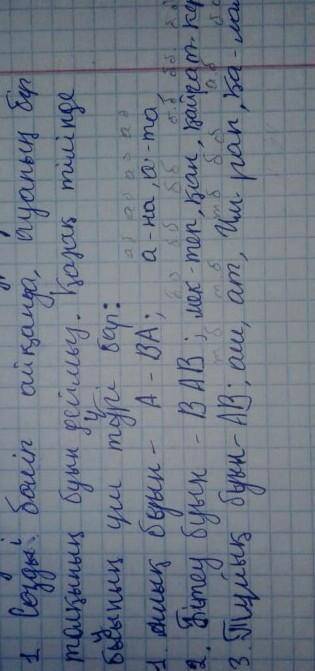 1. Сөзді бөліп айқанда, ауаның бір
толқының буын дейміз. Қазақ тілінде
буының үш түрі бар:
1. Ашық буын - А - ВА; а-на, а-та,
2. Бітеу буын - ВАВ; мек-теп, қан, қайрат-кер
3. Тұйық буын - АВ; аш, ат, ұрпақ, қа-ла